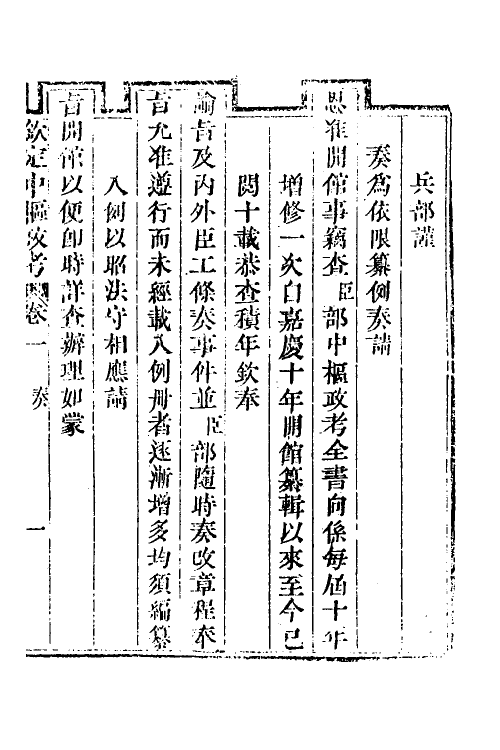 兵部謹
奏為依限纂例奏請
恩准開館事竊查臣部中樞政考全書向係每屆十年
增修一次自嘉慶十年開館纂輯以來至今已
閱十載恭查積年欽奉
諭旨及內外臣工條奏事件並臣部隨時奏改章程奉
旨允准遵行而未經載入例冊者逐漸增多均須編纂
入例以昭法守相應請
旨開館以便卽時詳查辦理如蒙
欽定中樞政考 卷一 奏 一